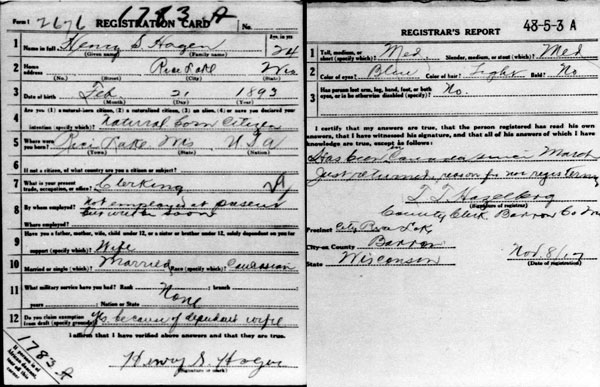 Form 1 2676 1783 A
REGISTRATION CARD No.
1 Name in full Henry S. Hagen Age, in yrs. 24
(Given name) (Family name)
2 Home address Rice Lake Wis
(No.) (Street) (City) (State)
3 Date of birth Feb 21 1893
(Month) (Day) (Year)
4 Are you (1) a natural-born citizen, (2) a naturalized citizen, (3) an alien, (4) or have you declared your
intention (specify which)? Natural Born Citizen
5 Where were you born? Rice Lake Wis U.S.A
(Town) (State) (Nation)
6 If not a citizen, of what country are you a citizen or subject?
7 What is your present trade, occupation, or office? Clerking
8 By whom employed? Not employed at present
but will soon
Where employed?
9 Have you a father, mother, wife, child under 12, or a sister or brother under 12, solely dependent on you for
support (specify which)? Wife
10 Married or single (which)? Married Race (specify which)? Caucasian
11 What military service have you had? Rank None ; branch
years ; Nation or State
12 Do you claim exemption from draft (specify grounds)? Yes because of dependent wife
I affirm that I have verified above answers and that they are true.
Henry S. Hagen
(Signature or mark)
1783-A
REGISTRAR'S REPORT 48-5-3 A
1 Tall, medium, or short (specify which)? Med Slender, medium, or stout (which)? Med
2 Color of eyes? Blue Color of hair? Light Bald? No
3 Has person lost arm, leg, hand, foot, or both eyes, or is he otherwise disabled (specify)? No.
I certify that my answers are true, that the person registered has read his own
answers, that I have witnessed his signature, and that all of his answers of which I have
knowledge are true, except as follows:
Has been Canada since March
Just returned, reason for not registering
(Signature of registrar)
County Clerk Barron Co
Precinct City Rice Lake
City or County Barron
State Wisconsin Nov. 8/17
(Date of registration)